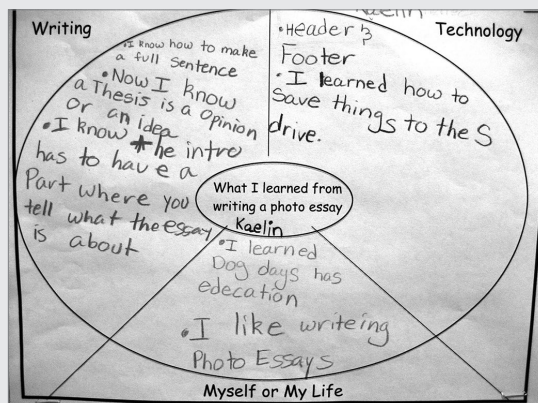 Writing
• I know how to make
a full sentence
• Now I know
a Thesis is a Opinion
or an idea
• I know the intro
has to have a
Part where you
tell what the essay
is about
Kaelin
Technology
• Header &
Footer
• I learned how to
save things to the S
drive.
What I learned from
writing a photo essay
Kaelin
• I learned
Dog days has
edecation
• I like writeing
Photo Essays
Myself or My Life